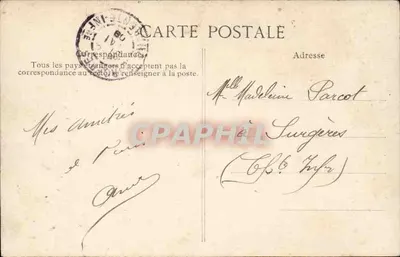 CARTE POSTALE
Correspondance
Tous les pays étrangers n'acceptent pas la
correspondance au recto se renseigner à la poste.
Adresse
Mes amitiés
et
CPARPHIL
Mlle Madeleine Parcot
à Surgères
(Chte Infre)